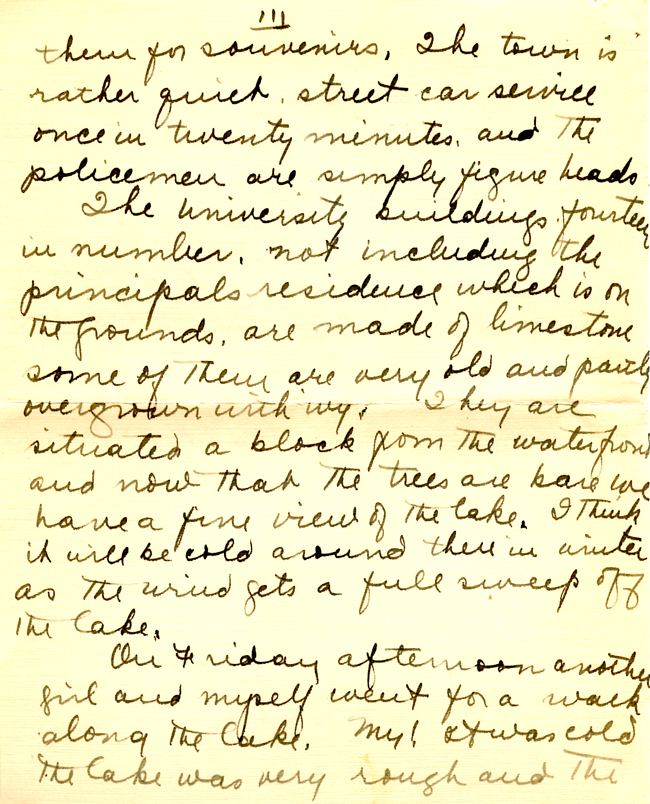 III
them for souvenirs. The town is
rather quiet. street car service
once in twenty minutes. and the
policemen are simply figure heads
The University buildings fourteen
in number. not including the
principals residence which is on
the grounds. are made of limestone
some of them are very old and partly
overgrown with ivy. They are
situated a block from the waterfront
and now that the trees are bare we
have a fine view of the lake. I think
it will be cold around there in winter
as the wind gets a full sweep off
the lake.
On Friday afternoon another
girl and myself went for a walk
along the lake. My! it was cold
the lake was very rough and the